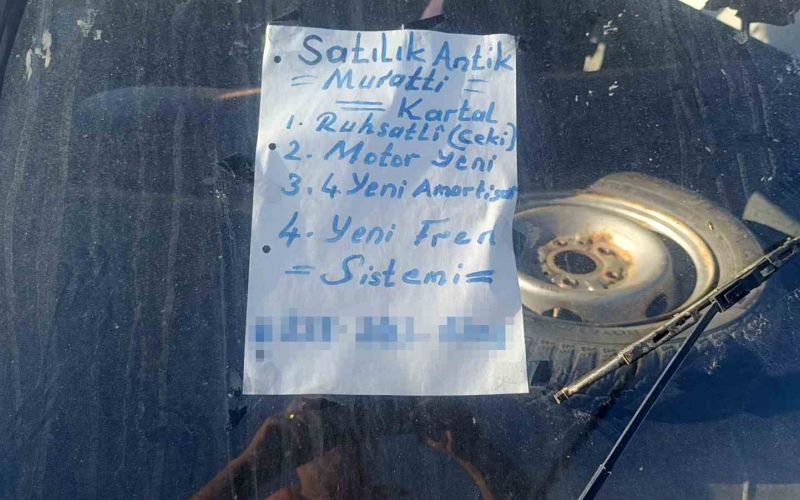 • Satılık Antik
= Muratti =
= Kartal
1. Ruhsatlı (Çeki)
2. Motor Yeni
3. 4 Yeni Amortisör
4. Yeni Fren
= Sistemi =